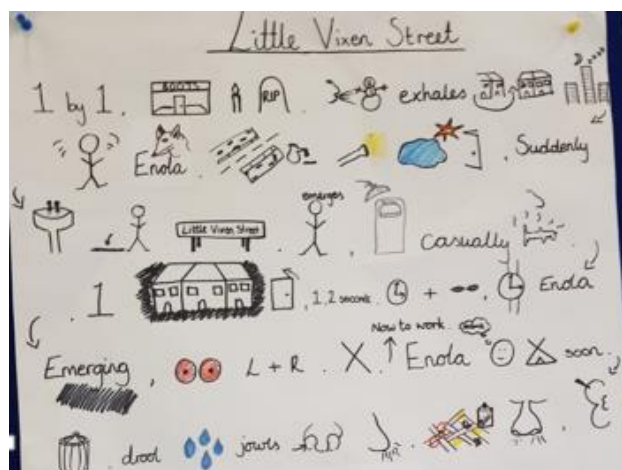 Little Vixen Street
1 by 1. BOOTS RIP. exhales
Enola. Suddenly
Little Vixen Street emerges. Casually
1 1,2 seconds. + Enola
Now to work.
Emerging, L + R. X. Enola soon.
drool jowls